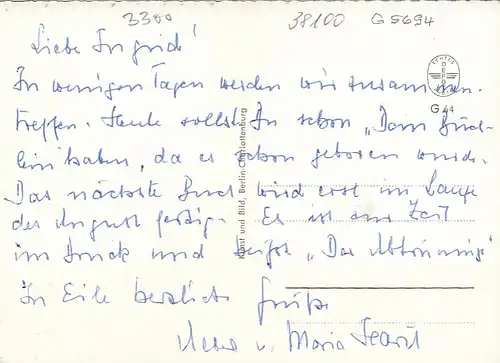 3300 38100 G 5694
Liebe Ingrid!
In wenigen Tagen werden wir zusammen-
treffen. Heute sollst Du schon „Dein Büch-
lein haben, da es schon geboren wurde.
Das nächste Buch wird erst im Laufe
des August fertig. Es ist zur Zeit
im Druck und heißt „Der Abtrünnige"
In Eile herzliche Grüße
u. Maria
ECHTES
G 44
Kunst und Bild, Berlin-Charlottenburg